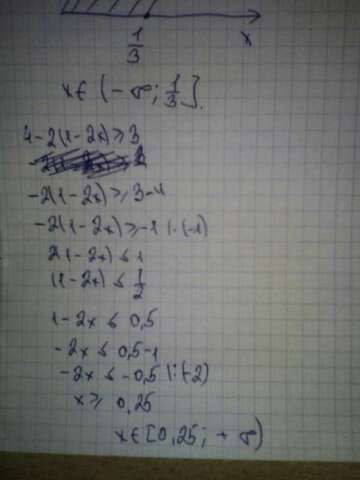 1/3 x
x ∈ (-∞; 1/3].
4-2(1-2x) ≥ 3
-2(1-2x) ≥ 3-4
-2(1-2x) ≥ -1 |·(-1)
2(1-2x) ≤ 1
(1-2x) ≤ 1/2
1-2x ≤ 0,5
-2x ≤ 0,5-1
-2x ≤ -0,5 |:(-2)
x ≥ 0,25
x ∈ [0,25; +∞)